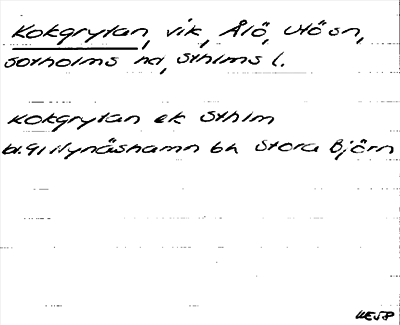 Kokgrytan, vik, Ålö, Utö sn,
Sotholms hd, Sthlms l.
Kokgrytan ek Sthlm
bl. 91 Nynäshamn bh Stora Björn
WE58